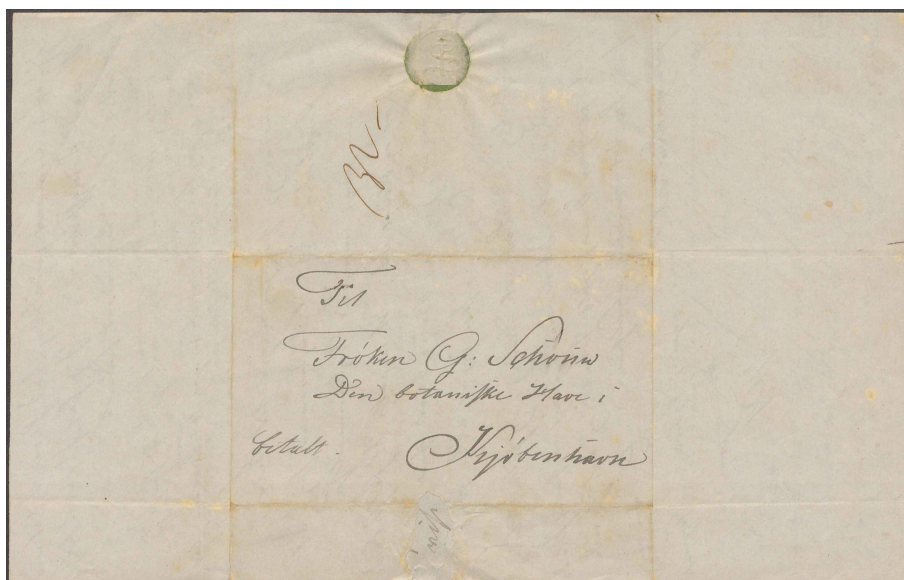 Til
Frøken G: Schouw
Den botaniske Have i
betalt. Kjøbenhavn